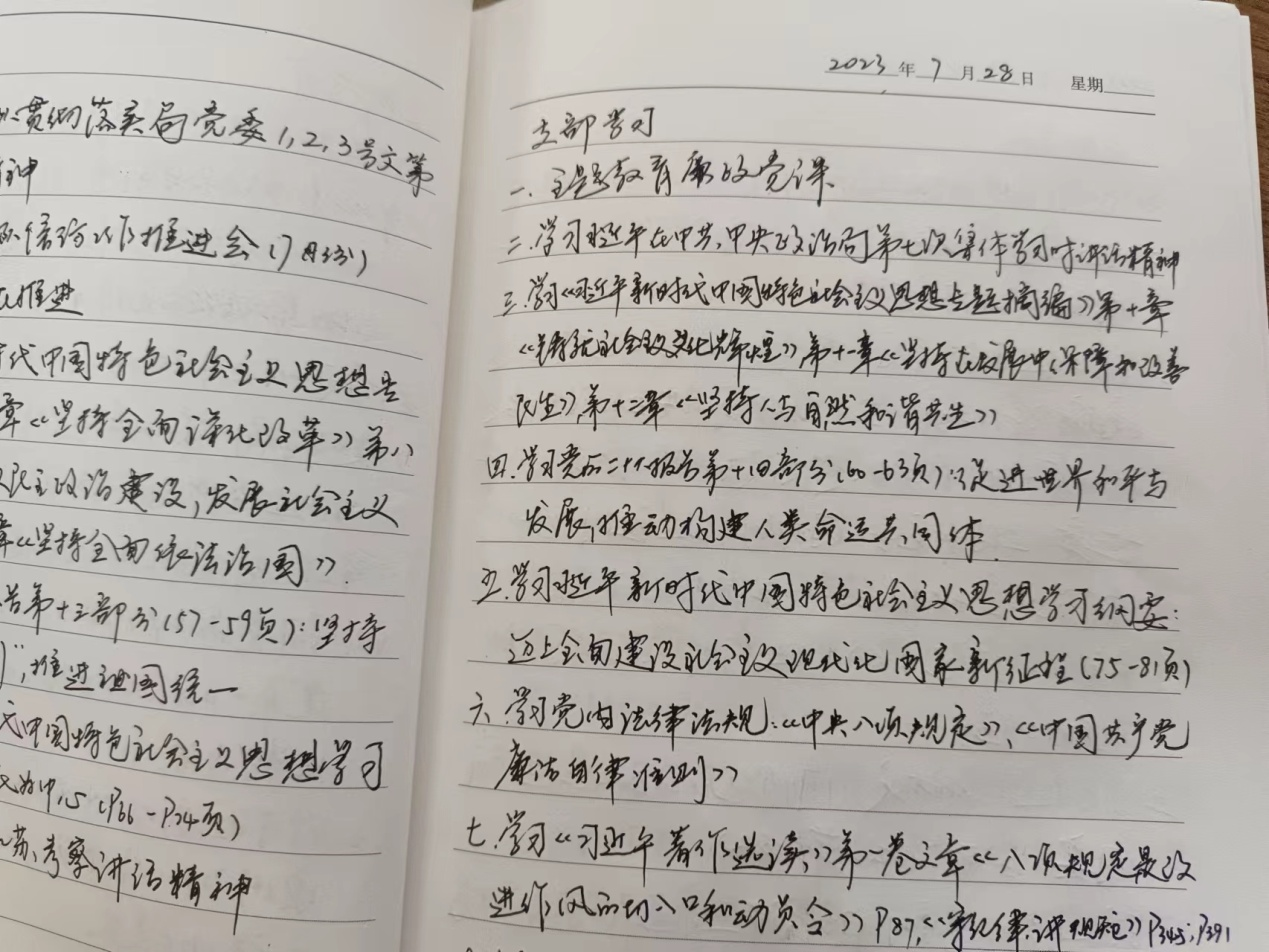 贯彻落实局党委1,2,3号文第
神
信访工作推进会(7月份)
推进
代中国特色社会主义思想专
章《坚持全面深化改革》第八
民主政治建设,发展社会主义
章《坚持全面依法治国》.
告第十三部分(57-59页):坚持
",推进祖国统一
中国特色社会主义思想学习
为中心(P66-P74页)
苏考察讲话精神
2023年7月28日 星期
支部学习
一.主题教育廉政党课
二.学习习近平在中共中央政治局第七次集体学习时讲话精神
三.学习《习近平新时代中国特色社会主义思想专题摘编》第十章
《铸就社会主义文化辉煌》第十一章《坚持在发展中保障和改善
民生》第十二章《坚持人与自然和谐共生》
四.学习党的二十大报告第十四部分(60-63页):促进世界和平与
发展,推动构建人类命运共同体.
五.学习习近平新时代中国特色社会主义思想学习纲要:
迈上全面建设社会主义现代化国家新征程(75-81页)
六.学习党内法律法规:《中央八项规定》、《中国共产党
廉洁自律准则》
七.学习《习近平著作选读》第一卷文章《八项规定是改
进作风的切入口和动员令》P87,《守纪律,讲规矩》P345,P391